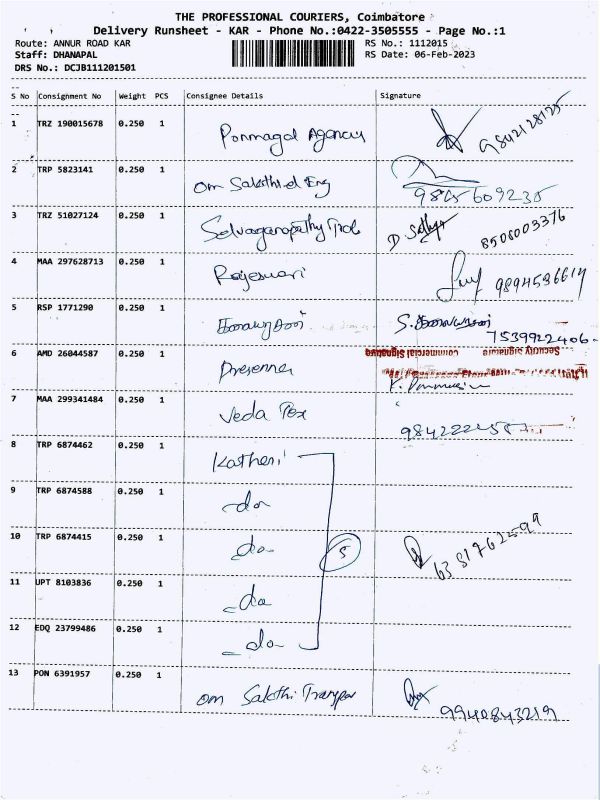 THE PROFESSIONAL COURIERS, Coimbatore
Delivery Runsheet - KAR - Phone No.:0422-3505555 - Page No.:1
Route: ANNUR ROAD KAR RS No.: 1112015
Staff: DHANAPAL RS Date: 06-Feb-2023
DRS No.: DCJB111201501
S No Consignment No Weight PCS Consignee Details Signature
1 TRZ 190015678 0.250 1 Ponmagal Agency 9842128125
2 TRP 5823141 0.250 1 Om Sakthi Eng
3 TRZ 51027124 0.250 1 8508003376
4 MAA 297628713 0.250 1 Rajeswari
5 RSP 1771290 0.250 1 7539922406
6 AMD 26044587 0.250 1
Security Signature Commercial Signature
7 MAA 299341484 0.250 1 Veda Tex
8 TRP 6874462 0.250 1 Katheri
9 TRP 6874588 0.250 1 -do-
10 TRP 6874415 0.250 1 -do- 5
11 UPT 8103836 0.250 1 -do-
12 EDQ 23799486 0.250 1 -do-
13 PON 6391957 0.250 1 Om Sakthi 9940843219